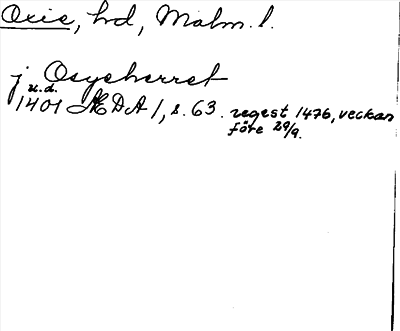 Oxie, hd, Malm. l.
j Osyeherret
u.d.
1401 ÆDA 1, s. 63. regest 1476, veckan
före 29/9.